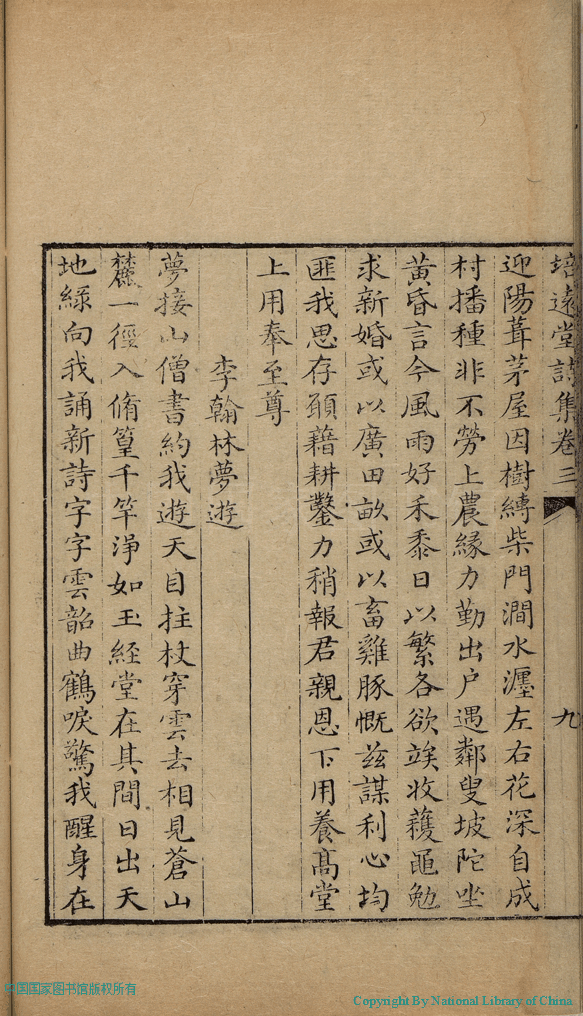 培遠堂詩集卷三
九
迎陽葺茅屋因樹縛柴門澗水瀍左右花深自成
村播種非不勞上農緣力勤出户遇鄰叟坡陀坐
黃昏言今風雨好禾黍日以繁各欲竢收穫黽勉
求新婚或以廣田畝或以畜雞豚慨兹謀利心均
匪我思存頋藉耕鑿力稍報君親恩下用養髙堂
上用奉至尊
李翰林夢遊
夢接山僧書約我遊天目拄杖穿雲去相見蒼山
麓一徑入脩篁千竿淨如玉經堂在其間日出天
地綠向我誦新詩字字雲韶曲鶴唳驚我醒身在
中国国家图书馆版权所有
Copyright By National Library of China